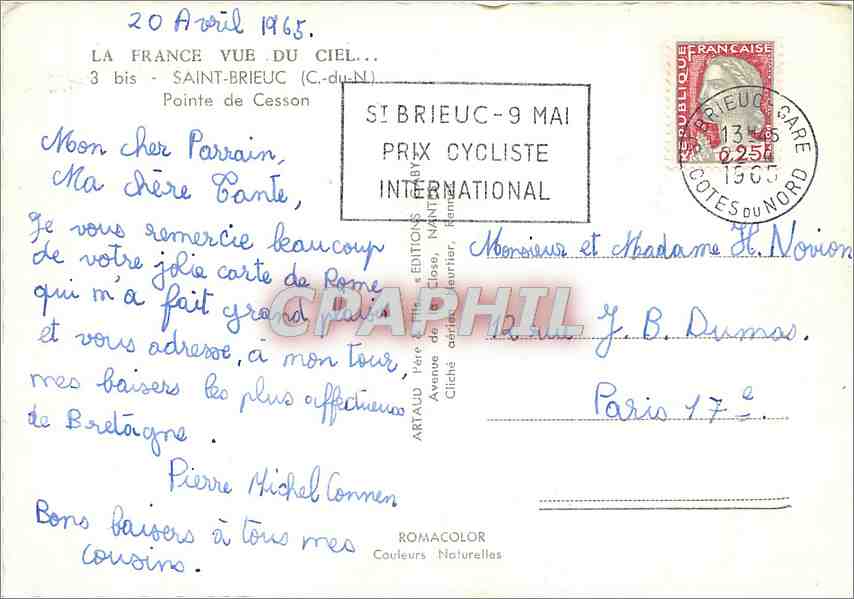 20 Avril 1965.
LA FRANCE VUE DU CIEL...
3 bis - SAINT-BRIEUC (C.-du-N.)
Pointe de Cesson
Mon cher Parrain,
Ma chère Tante,
Je vous remercie beaucoup
de votre jolie carte de Rome
qui m'a fait grand plaisir
et vous adresse, à mon tour,
mes baisers les plus affectueux
de Bretagne.
Pierre Michel Connen
Bons baisers à tous mes
cousins.
ST BRIEUC - 9 MAI
PRIX CYCLISTE
INTERNATIONAL
RÉPUBLIQUE FRANÇAISE
0,25
ST BRIEUC - GARE
13H45
1965
COTES DU NORD
Monsieur et Madame H. Novion
12 rue J. B. Dumas.
Paris 17e.
ARTAUD Père & Fils « EDITIONS GABY »
Avenue de Close, NANTES
Cliché aérien Heurtier, Rennes
CPAPHIL
ROMACOLOR
Couleurs Naturelles